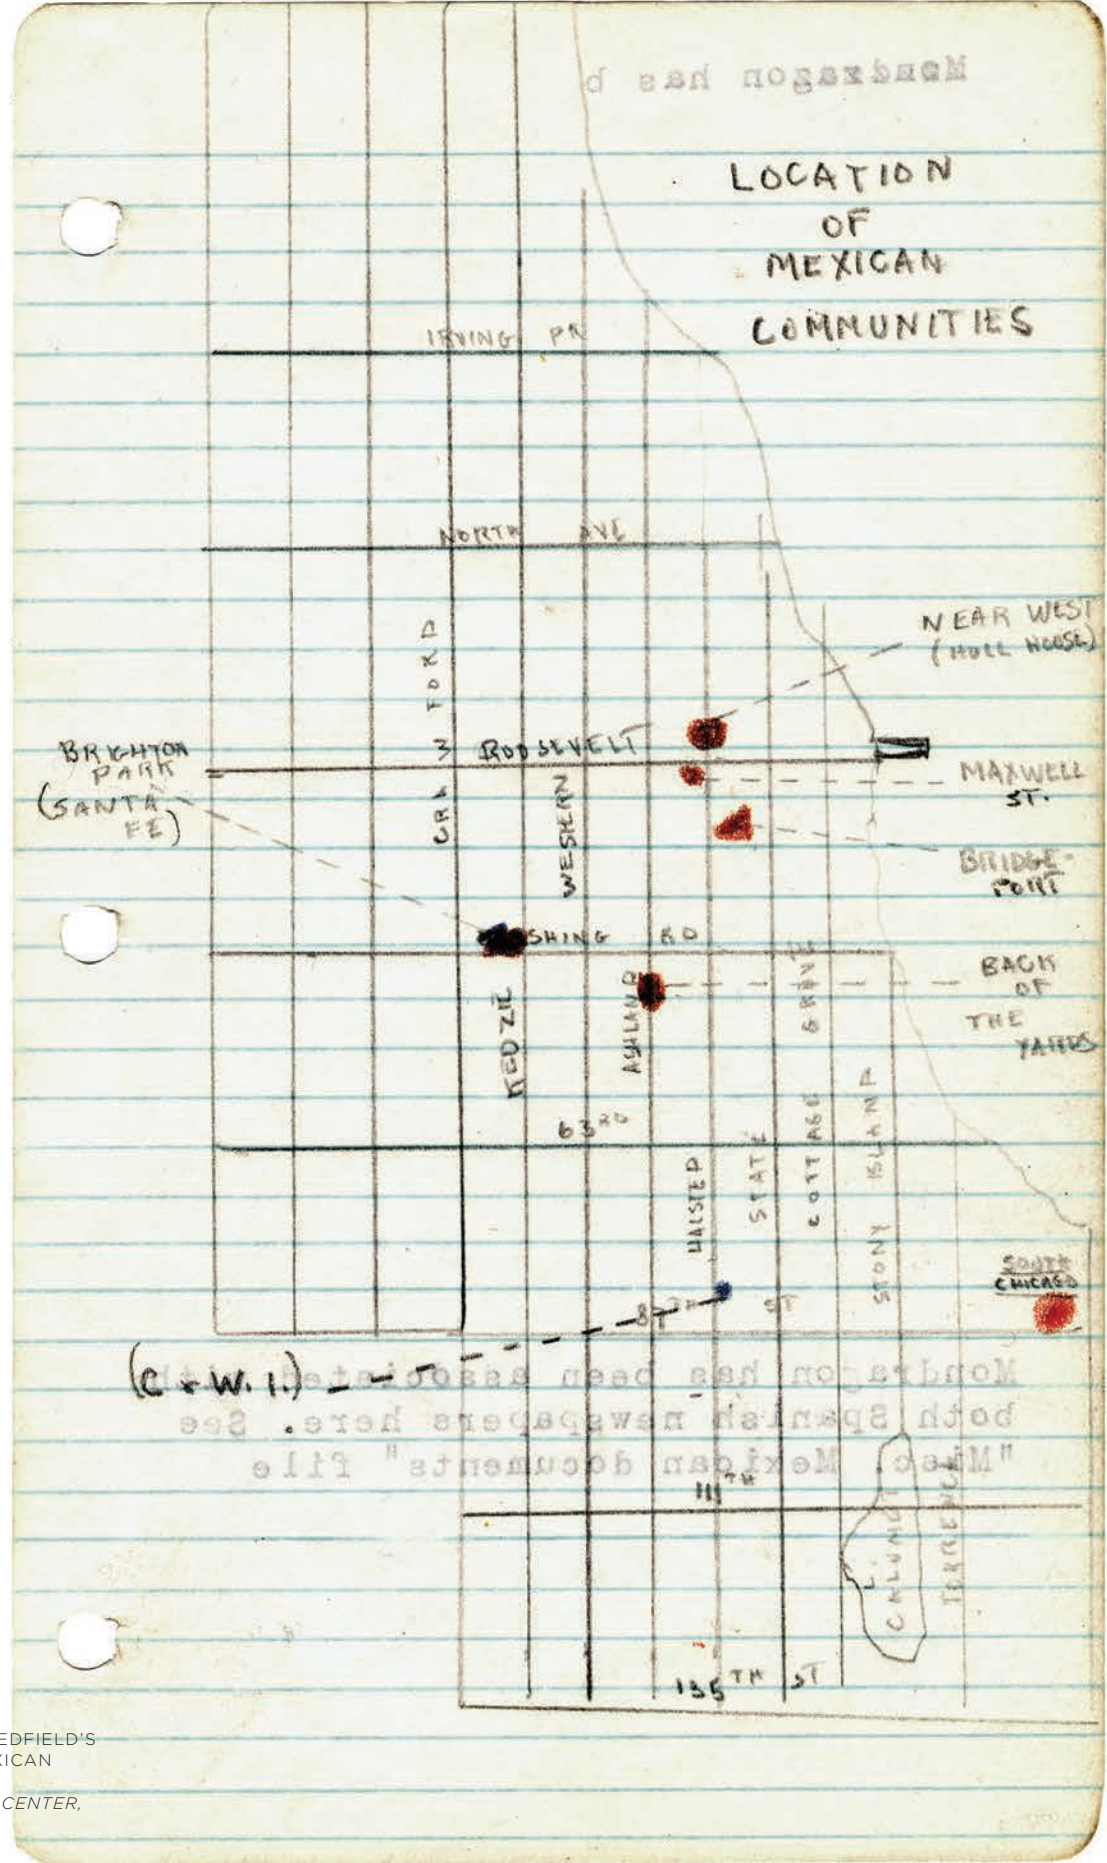 Mondragon has b
LOCATION
OF
MEXICAN
COMMUNITIES
IRVING PK
NORTH AVE
NEAR WEST
(HULL HOUSE)
CRAWFORD
ROOSEVELT
BRIGHTON
PARK
(SANTA
FE)
MAXWELL
ST.
WESTERN
BRIDGE-
PORT
SHING RD
BACK
OF
THE
YARDS
KEDZIE
ASHLAND
COTTAGE GROVE
63RD
HALSTED
STATE
STONY ISLAND
SOUTH
CHICAGO
87TH ST
(C & W. I.)
Mondragon has been associated with
both Spanish newspapers here. See
"Misc. Mexican documents" file
111TH
L.
CALUMET
TORRENCE
135TH ST
EDFIELD'S
XICAN
CENTER,